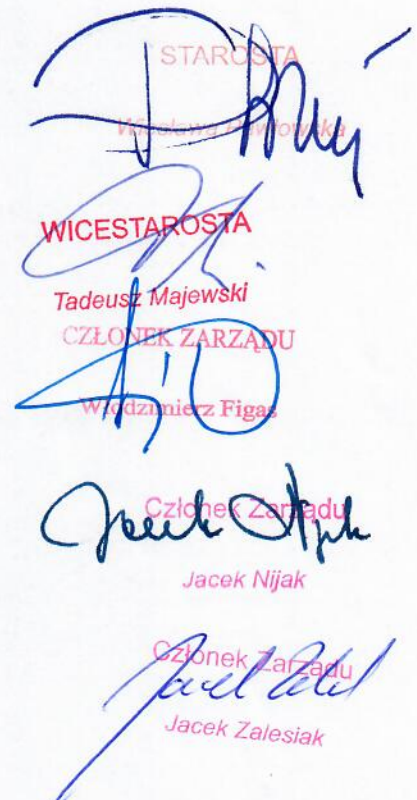 STAROSTA
Wiesława Pawłowska
WICESTAROSTA
Tadeusz Majewski
CZŁONEK ZARZĄDU
Włodzimierz Figas
Członek Zarządu
Jacek Nijak
Członek Zarządu
Jacek Zalesiak